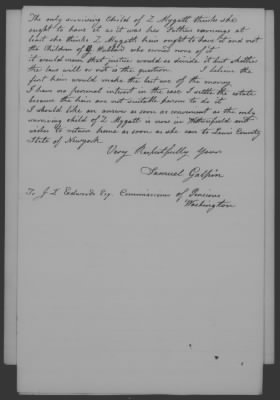 The only surviving Child of Z. Mygatt thinks she
ought to have it as it was her Fathers earnings at
least she thinks Z. Mygatts heirs ought to have it and not
the Children of Hubbard who earned none of it
it would seem that justice would so divide it but whether
the law will or not is the question I believe the
first heirs would make the best use of the money
I have no personal interest in the case I settle the estate
because the heirs are not suitable persons to do it
I should like an answer as soon as convenient as the only
surviving child of Z. Mygatt is now in Wethersfield and
wishes to return home as soon as she can to Lewis County
State of Newyork.
Very Respectfully Yours
Samuel Galpin
To J L Edwards Esq. Commissioner of Pensions
Washington